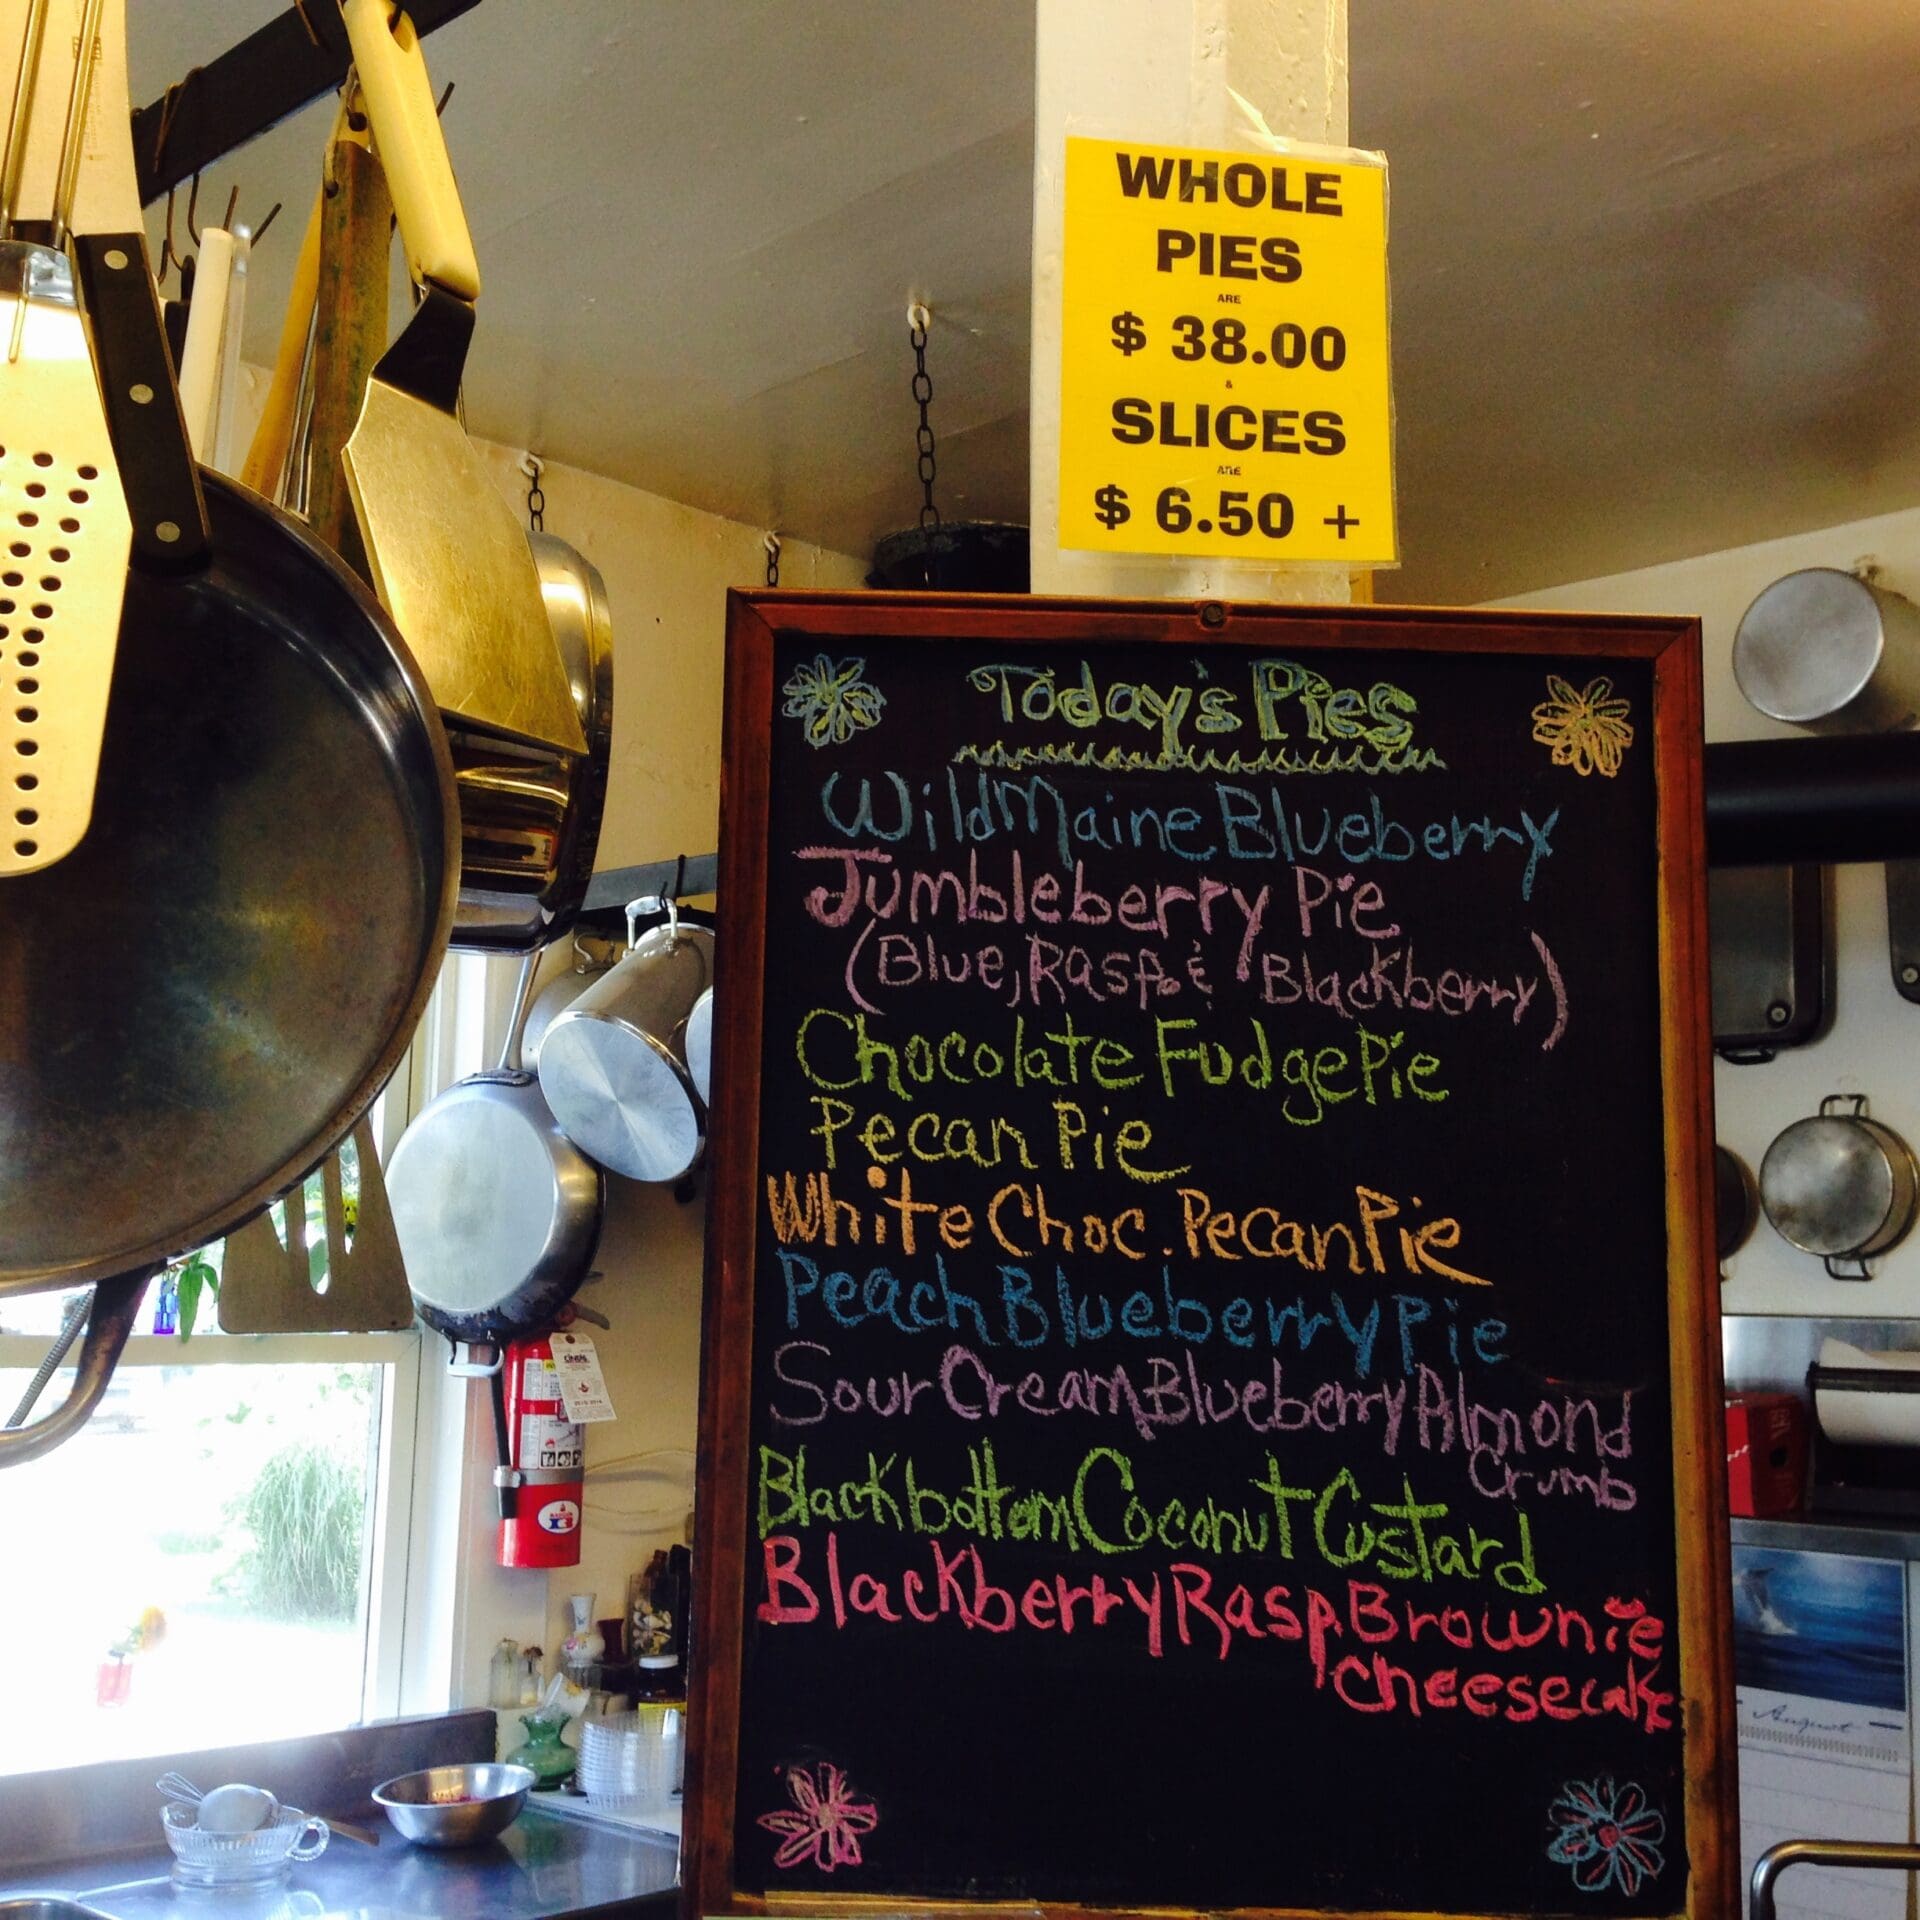 WHOLE
PIES
ARE
$ 38.00
&
SLICES
ARE
$ 6.50 +
Today's Pies
Wild Maine Blueberry
Jumbleberry Pie
(Blue, Rasp. & Blackberry)
Chocolate Fudge Pie
Pecan Pie
White Choc. Pecan Pie
Peach Blueberry Pie
Sour Cream Blueberry Almond
Crumb
Blackbottom Coconut Custard
Blackberry Rasp. Brownie
Cheesecake
August